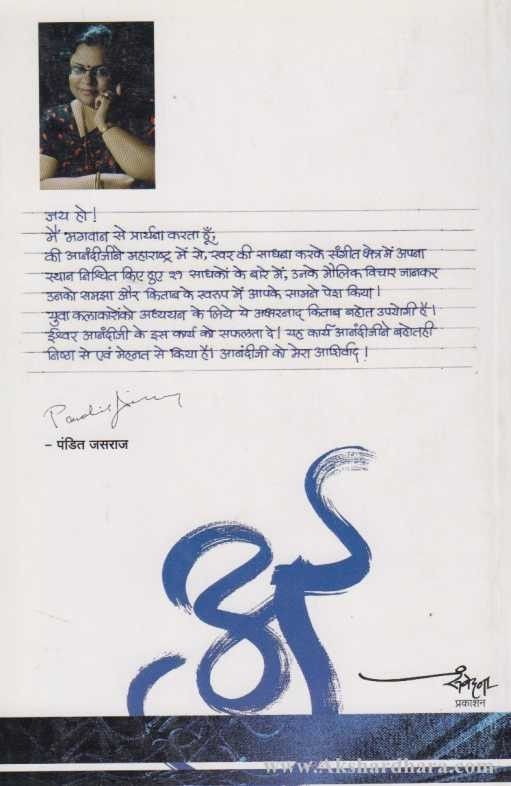 जय हो!
मैं भगवान से प्रार्थना करता हूँ,
की आनंदीजीने महाराष्ट्र में से, स्वर की साधना करके संगीत क्षेत्र में अपना
स्थान निश्चित किए हुए २१ साधकों के बारे में, उनके मौलिक विचार जानकर
उनको समझा और किताब के स्वरुप में आपके सामने पेश किया।
युवा कलाकारोंको अध्ययन के लिये ये अक्षरनाद किताब बहोत उपयोगी है।
ईश्वर आनंदीजी के इस कार्य को सफलता दे। यह कार्य आनंदीजीने बहोतही
निष्ठा से एवं मेहनत से किया है। आनंदीजी को मेरा आशिर्वाद!
– पंडित जसराज
संवेदना
प्रकाशन
www.Akshardhara.com